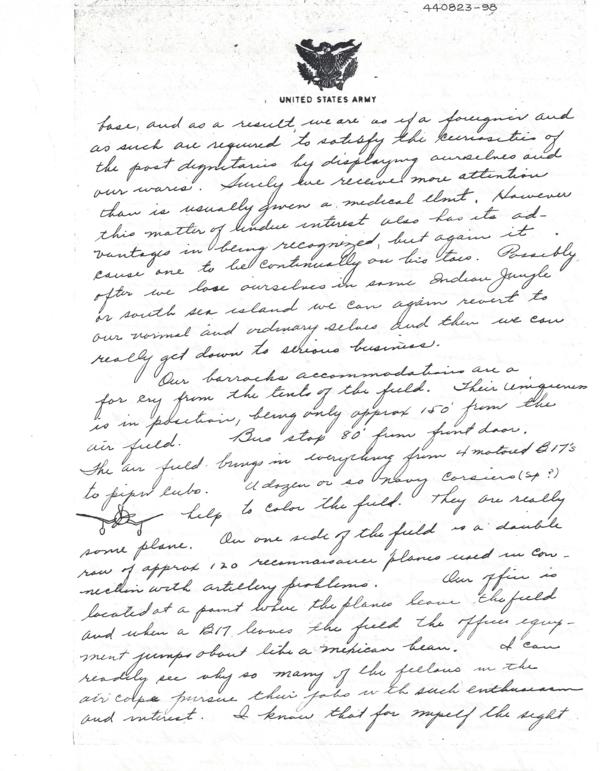 440823-98
UNITED STATES ARMY
base, and as a result, we are as if a foreigner and
as such are required to satisfy the curiosities of
the post dignitaries by displaying ourselves and
our wares. Surely we receive more attention
than is usually given a medical elmt. However
this matter of undue interest also has its ad-
vantages in being recognized, but again it
cause one to be continually on his toes. Possibly
after we lose ourselves in some Indian Jungle
or south sea island we can again revert to
our normal and ordinary selves and then we can
really get down to serious business.
Our barracks accommodations are a
far cry from the tents of the field. Their uniqueness
is in position, being only approx 150' from the
air field. Bus stop 80' from front door.
The air field brings in everything from 4 motored B17's
to piper cubs. A dozen or so navy Corsiers (sp?)
help to color the field. They are really
some plane. On one side of the field is a double
row of approx 120 reconnaissance planes used in con-
nection with artillery problems. Our office is
located at a point where the planes leave the field
and when a B17 leaves the field the office equip-
ment jumps about like a mexican bean. I can
readily see why so many of the fellows in the
air corps pursue their jobs with such enthusiasm
and interest. I know that for myself the sight